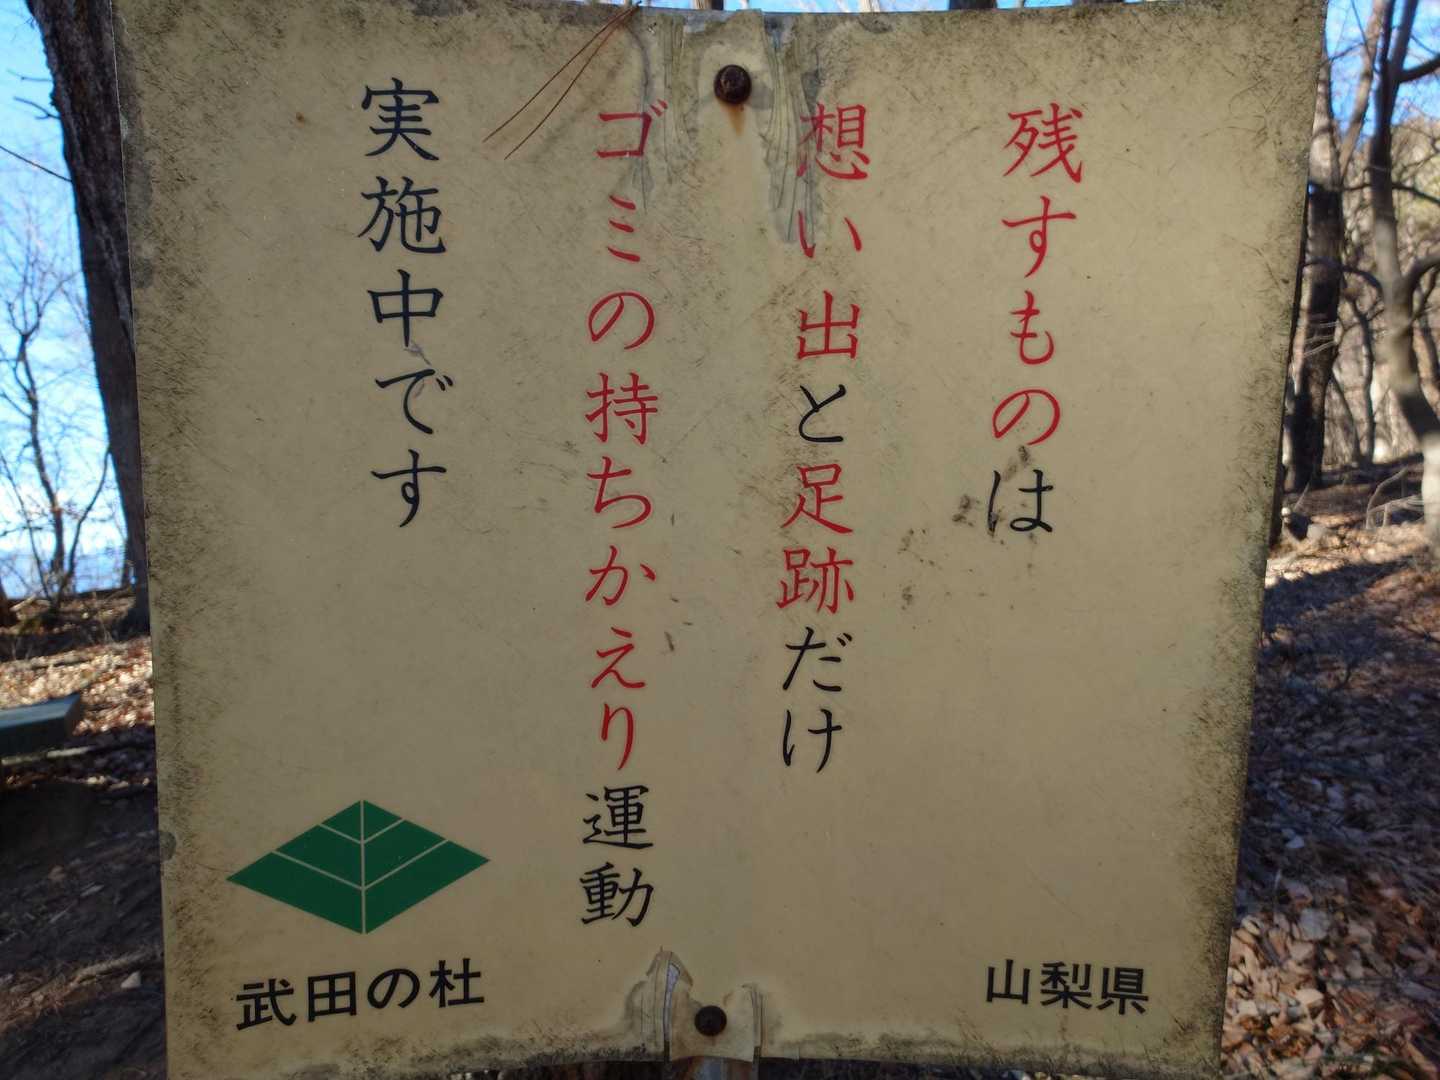 残すものは
想い出と足跡だけ
ゴミの持ちかえり運動
実施中です
山梨県
武田の杜